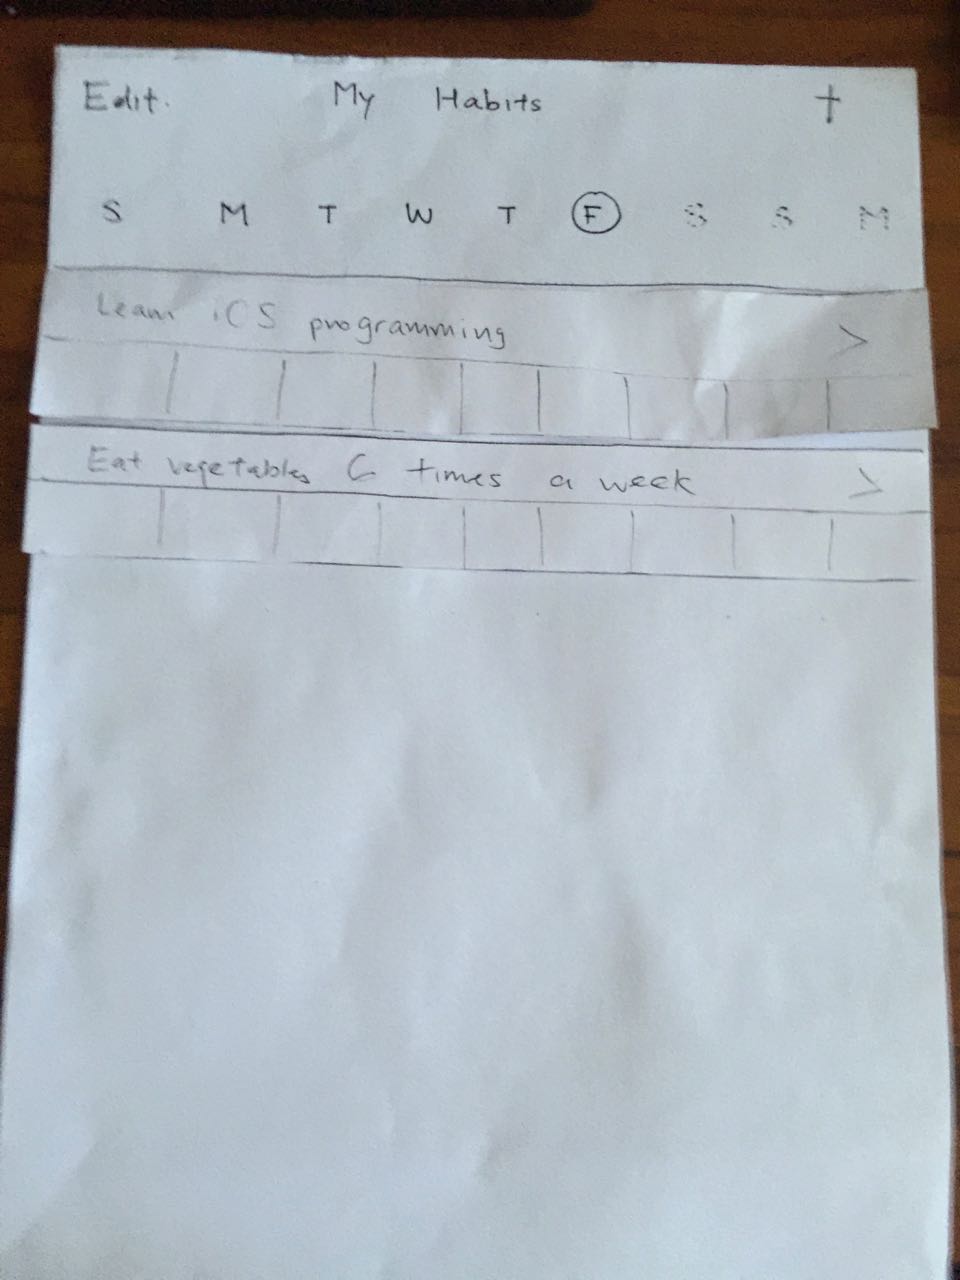 Edit. My Habits +
S M T W T F S S M
Learn iOS programming >
Eat vegetables 6 times a week >